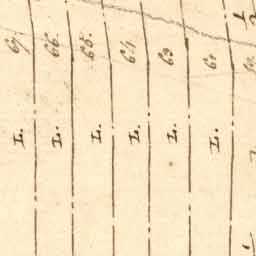 L. 67
L. 66.
L. 65.
L. 64
L. 63
L. 62